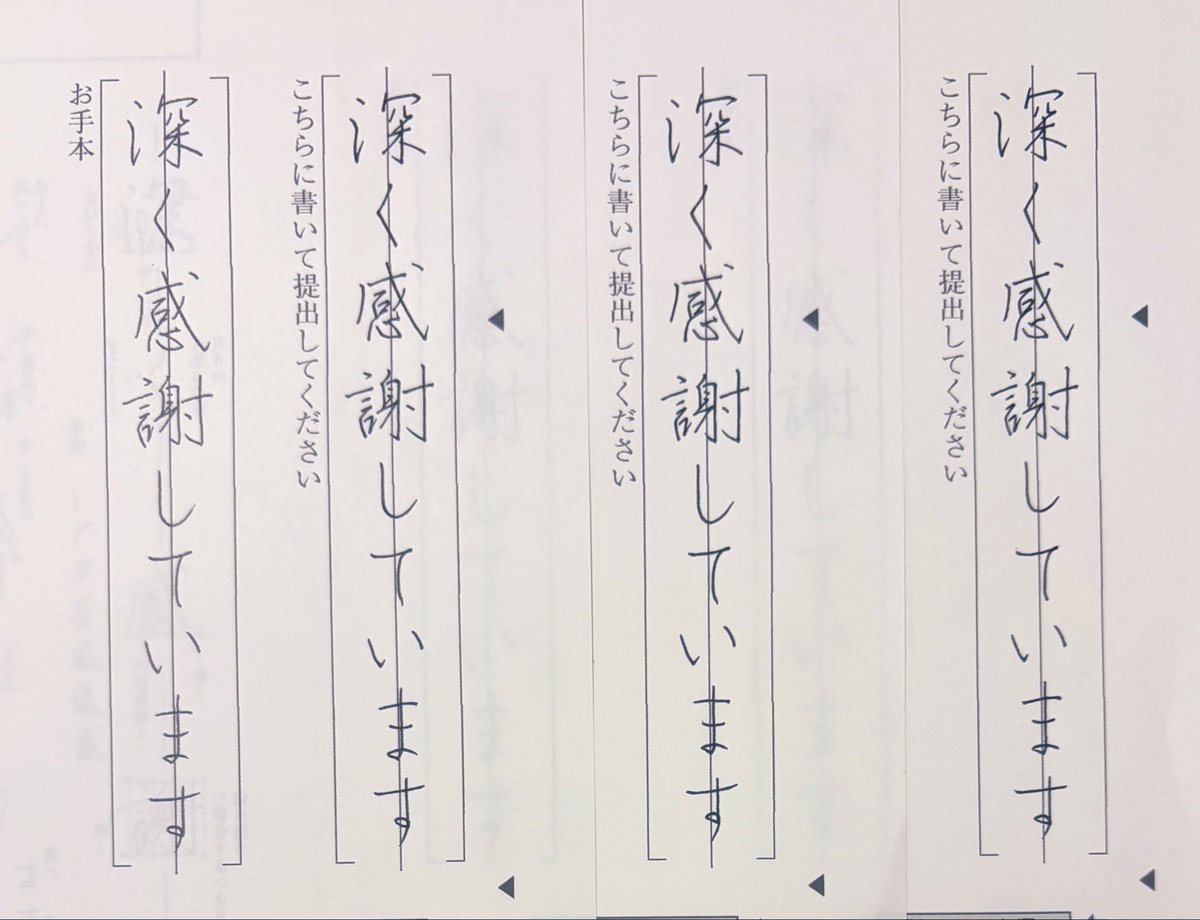 こちらに書いて提出してください
深く感謝しています
こちらに書いて提出してください
深く感謝しています
こちらに書いて提出してください
深く感謝しています
お手本
深く感謝しています